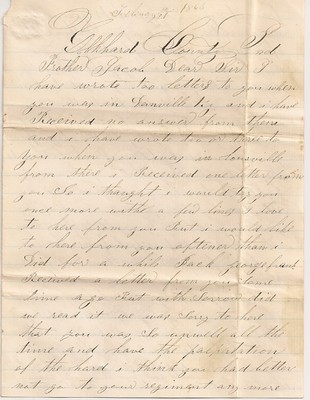 Elkhard County Ind
Brother Jacob Dear Sir I
have wrote too letters to you when
you was in Danville Ky and i have
Received no answer from them
and i have wrote too or three to
you when you was in Louisville
from there i Received one letter from
you So i thought i would try you
once more with a few lines I love
to here from you but i would like
to here from you oftener than i
Did for a while Jack george and
Received a letter from you some
time ago but with sorrow did
we read it we was sorry to here
that you was so unwell all the
time and have the palpitation
of the hard i think you had better
not go to your regimant any more